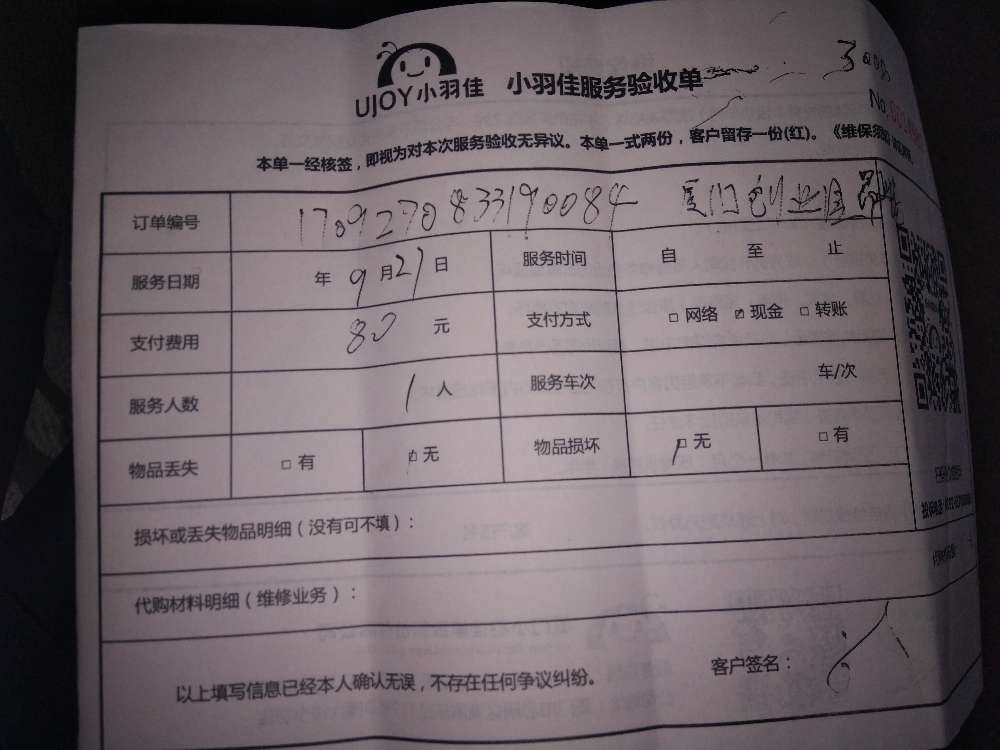 UJOY小羽佳 小羽佳服务验收单
No.
本单一经核签，即视为对本次服务验收无异议。本单一式两份，客户留存一份(红)。《维保须知》
订单编号 1709270833190084 厦门创业园
服务日期 年 9 月 21 日 服务时间 自 至 止
支付费用 80 元 支付方式 □ 网络 ☑ 现金 □ 转账
服务人数 1 人 服务车次 车/次
物品丢失 □ 有 ☑ 无 物品损坏 ☑ 无 □ 有
损坏或丢失物品明细（没有可不填）：
代购材料明细（维修业务）：
以上填写信息已经本人确认无误，不存在任何争议纠纷。 客户签名：